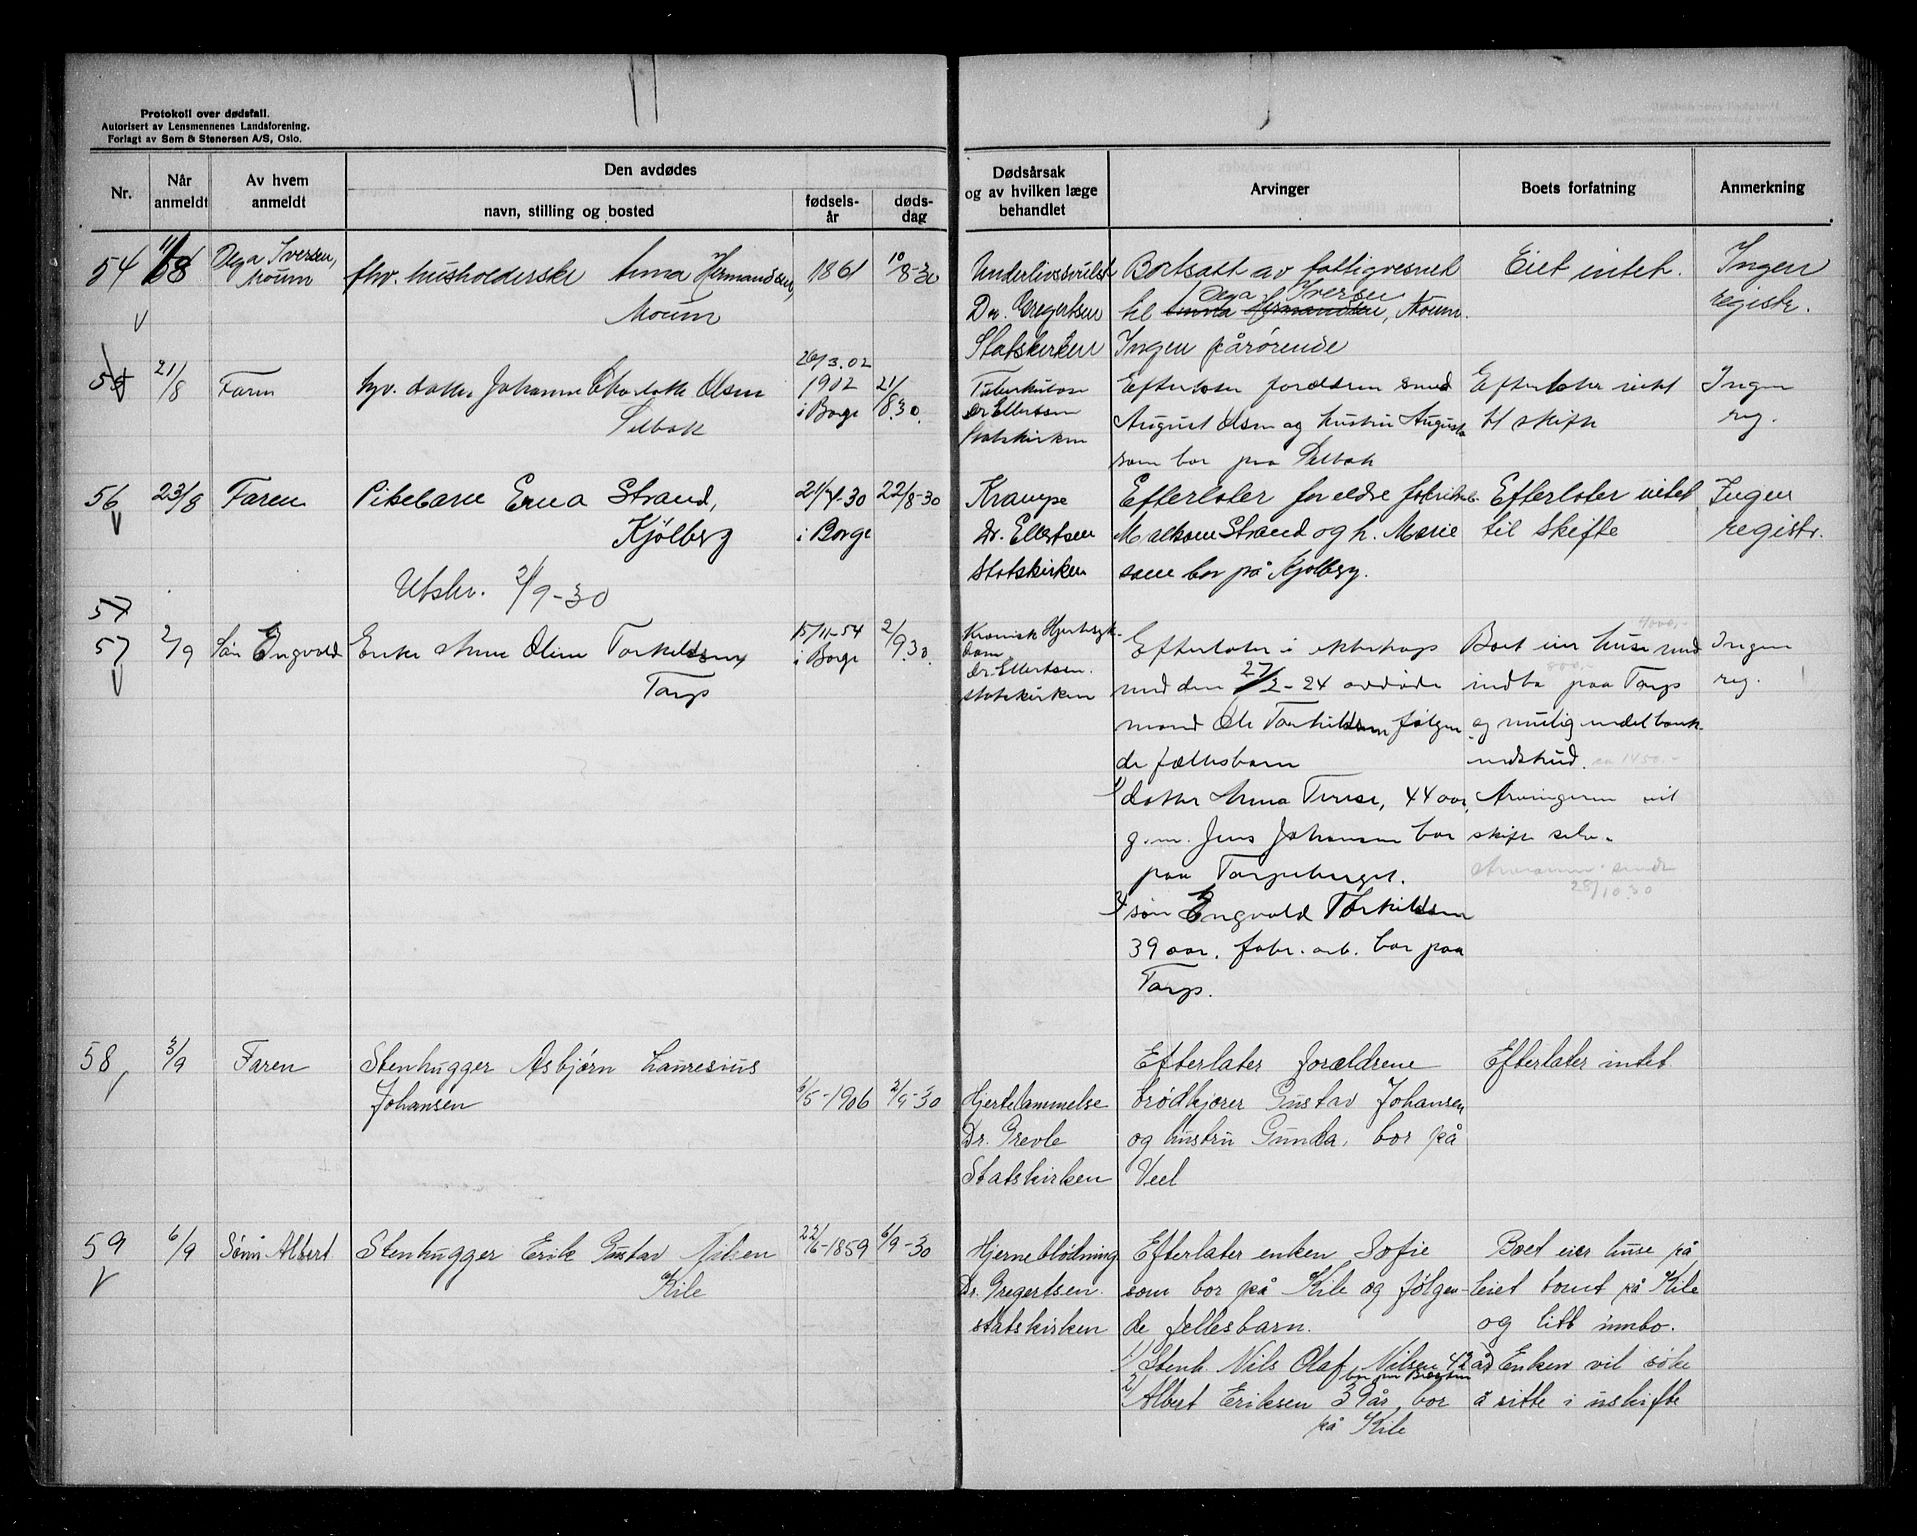 Protokoll over dødsfall.
Autorisert av Lensmennenes Landsforening.
Forlagt av Sem & Stenersen A/S, Oslo.
Nr.
Når anmeldt
Av hvem anmeldt
Den avdødes
navn, stilling og bosted
fødselsår
dødsdag
Dødsårsak og av hvilken læge behandlet
Arvinger
Boets forfatning
Anmerkning
54
11/8
Iversen,
Moum
fhv. husholderske Anna Hermandsen,
Moum
1861
10/8-30
Underlivssvulst
Dr. Gregertsen
Statskirken
Bortsatt av fattigvesnet
til Iversen
Anna Hermandsen, Moum.
Ingen pårørende
Eiet intet.
Ingen
registr.
55
21/8
Faren
hjv. datter Johanne Charlotte Olsen
Selbak
26/3.02
1902
i Borge
21/8.30.
Tuberkulose
Dr Ellertsen
Statskirken
Efterlater forældrene smed
August Olsen og hustru Augusta
som bor paa Selbak
Efterlater intet
til skifte
Ingen
reg.
56
23/8
Faren
Pikebarn Erna Strand,
Kjölberg
Utskr. 2/9-30
21/4-30
i Borge
22/8-30
Krampe
Dr. Ellertsen
Statskirken
Efterlater foreldre fabrikarb.
Malkom Strand og h. Marie
som bor på Kjölberg.
Efterlater intet
til skifte
Ingen
registr.
57
57
2/9
Søn Engvald
Enke Anne Oline Torkildsen
Torp
15/11-54
i Borge
2/9.30.
Kronisk Hjertesyk-
dom
Dr. Ellertsen.
Statskirken
Efterlater i ekteskap
med den 27/2-24 avdøde
mand Ole Torkildsen følgen
de fællesbarn
1/ datter Anna Terese, 44 aar,
g.m. Jens Johansen bor
paa Torpeberget.
2/ søn Engvald Torkildsen
39 aar. fabr. arb. bor paa
Torp.
4000,-
Boet eier huse med
800,-
indbo paa Torp
og mulig endel bank-
indskud. ca 1450,-
Arvingerne vil
skifte selv.
28/10 30
Ingen
reg.
58
3/9
Faren
Stenhugger Asbjørn Lauresius
Johansen
6/5-1906
2/9-30
Hjertelammelse
Dr. Grevle
Statskirken
Efterlater forældrene
brødkjører Gustav Johansen
og hustru Gunda, bor på
Veel
Efterlater intet
59
6/9
Sønn Albert
Stenhugger Erik Gustav Nilsen
Kile
22/6-1859
6/9-30
Hjerneblödning
Dr. Gregertsen.
statskirken
Efterlater enken Sofie
som bor på Kile og følgen-
de fellesbarn.
1/ Stenh. Nils Olaf Nilsen 42 år
2/ Albert Eriksen 39 år, bor
på Kile
Boet eier huse på
leiet tomt på Kile
og litt innbo.
Enken vil söke
å sitte i uskifte